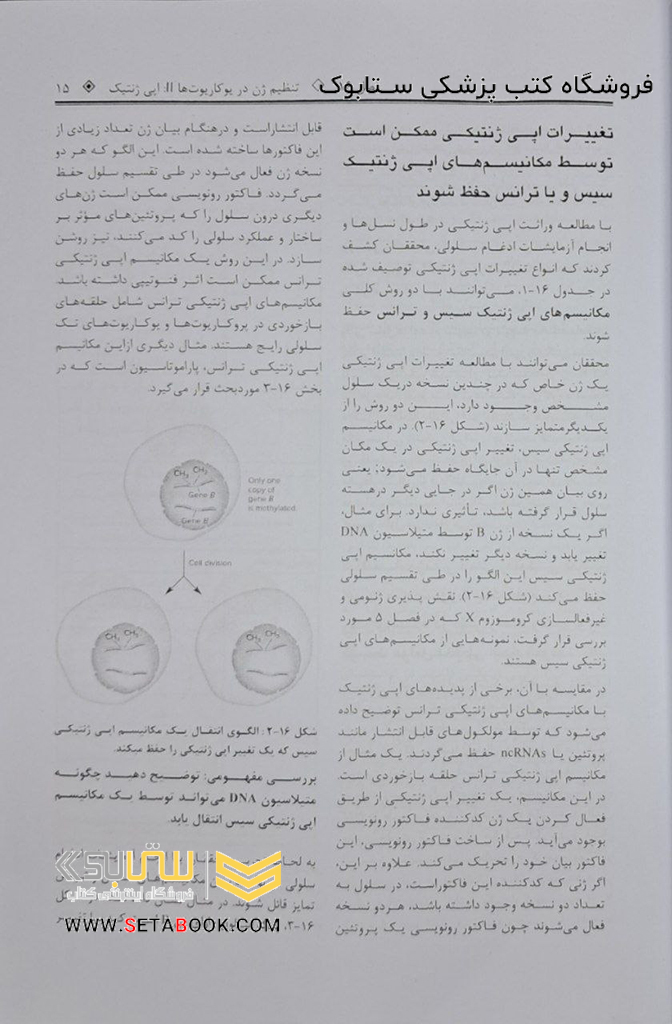 فروشگاه کتب پزشکی ستابوک
تنظیم ژن در یوکاریوت‌ها II: اپی ژنتیک ۱۵
تغییرات اپی ژنتیکی ممکن است
توسط مکانیسم‌های اپی ژنتیک
سیس و یا ترانس حفظ شوند
با مطالعه وراثت اپی ژنتیکی در طول نسل‌ها و
انجام آزمایشات ادغام سلولی، محققان کشف
کردند که انواع تغییرات اپی ژنتیکی توصیف شده
در جدول ۱۶-۱، می‌توانند با دو روش کلی
مکانیسم‌های اپی ژنتیک سیس و ترانس حفظ
شوند.
محققان می‌توانند با مطالعه تغییرات اپی ژنتیکی
یک ژن خاص که در چندین نسخه دریک سلول
مشخص وجود دارد، این دو روش را از
یکدیگرمتمایز سازند (شکل ۱۶-۲). در مکانیسم
اپی ژنتیکی سیس، تغییر اپی ژنتیکی در یک مکان
مشخص تنها در آن جایگاه حفظ می‌شود؛ یعنی
روی بیان همین ژن اگر در جایی دیگر درهسته
سلول قرار گرفته باشد، تأثیری ندارد. برای مثال،
اگر یک نسخه از ژن B توسط متیلاسیون DNA
تغییر یابد و نسخه دیگر تغییر نکند، مکانسیم اپی
ژنتیکی سیس این الگو را در طی تقسیم سلولی
حفظ می‌کند (شکل ۱۶-۲). نقش پذیری ژنومی و
غیرفعالسازی کروموزوم X که در فصل ۵ مورد
بررسی قرار گرفت، نمونه‌هایی از مکانیسم‌های اپی
ژنتیکی سیس هستند.
در مقایسه با آن، برخی از پدیده‌های اپی ژنتیک
با مکانیسم‌های اپی ژنتیکی ترانس توضیح داده
می‌شود که توسط مولکول‌های قابل انتشار مانند
پروتئین یا ncRNAs حفظ می‌گردند. یک مثال از
مکانیم اپی ژنتیکی ترانس حلقه بازخوردی است.
در این مکانیسم، یک تغییر اپی ژنتیکی از طریق
فعال کردن یک ژن کدکننده فاکتور رونویسی
بوجود می‌آید. پس از ساخت فاکتور رونویسی، این
فاکتور بیان خود را تحریک می‌کند. علاوه بر این،
اگر ژنی که کدکننده این فاکتوراست، در سلول به
تعداد دو نسخه وجود داشته باشد، هردو نسخه
فعال می‌شوند چون فاکتور رونویسی یک پروتئین
قابل انتشاراست و درهنگام بیان ژن تعداد زیادی از
این فاکتورها ساخته شده است. این الگو که هر دو
نسخه ژن فعال می‌شود در طی تقسیم سلول حفظ
می‌گردد. فاکتور رونویسی ممکن است ژن‌های
دیگری درون سلول را که پروتئین‌های مؤثر بر
ساختار و عملکرد سلولی را کد می‌کنند، نیز روشن
سازد. در این روش یک مکانیم اپی ژنتیکی
ترانس ممکن است اثر فنوتیپی داشته باشد.
مکانیم‌های اپی ژنتیکی ترانس شامل حلقه‌های
بازخوردی در پروکاریوت‌ها و یوکاریوت‌های تک
سلولی رایج هستند. مثال دیگری ازاین مکانیم
اپی ژنتیکی ترانس، پاراموتاسیون است که در
بخش ۱۶-۳ موردبحث قرار می‌گیرد.
CH3 CH3
Gene B
Gene B
Only one
copy of
gene B
is methylated.
Cell division
CH3 CH3
CH3 CH3
شکل ۱۶-۲: الگوی انتقال یک مکانیسم اپی ژنتیکی
سیس که یک تغییر اپی ژنتیکی را حفظ میکند.
بررسی مفهومی: توضیح دهید چگونه
متیلاسیون DNA می‌تواند توسط یک مکانیسم
اپی ژنتیکی سیس انتقال یابد.
به لحاظ
سلولی
تمایز قائل شوند. در
۱۶-۳،
ستابوک
فروشگاه اینترنتی کتاب
WWW.SETABOOK.COM